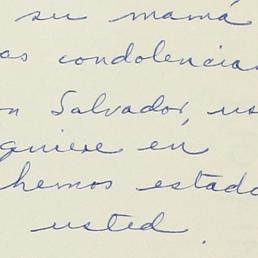 su mamá
as condolencias
n Salvador, us
quiere en
hemos estado
usted.